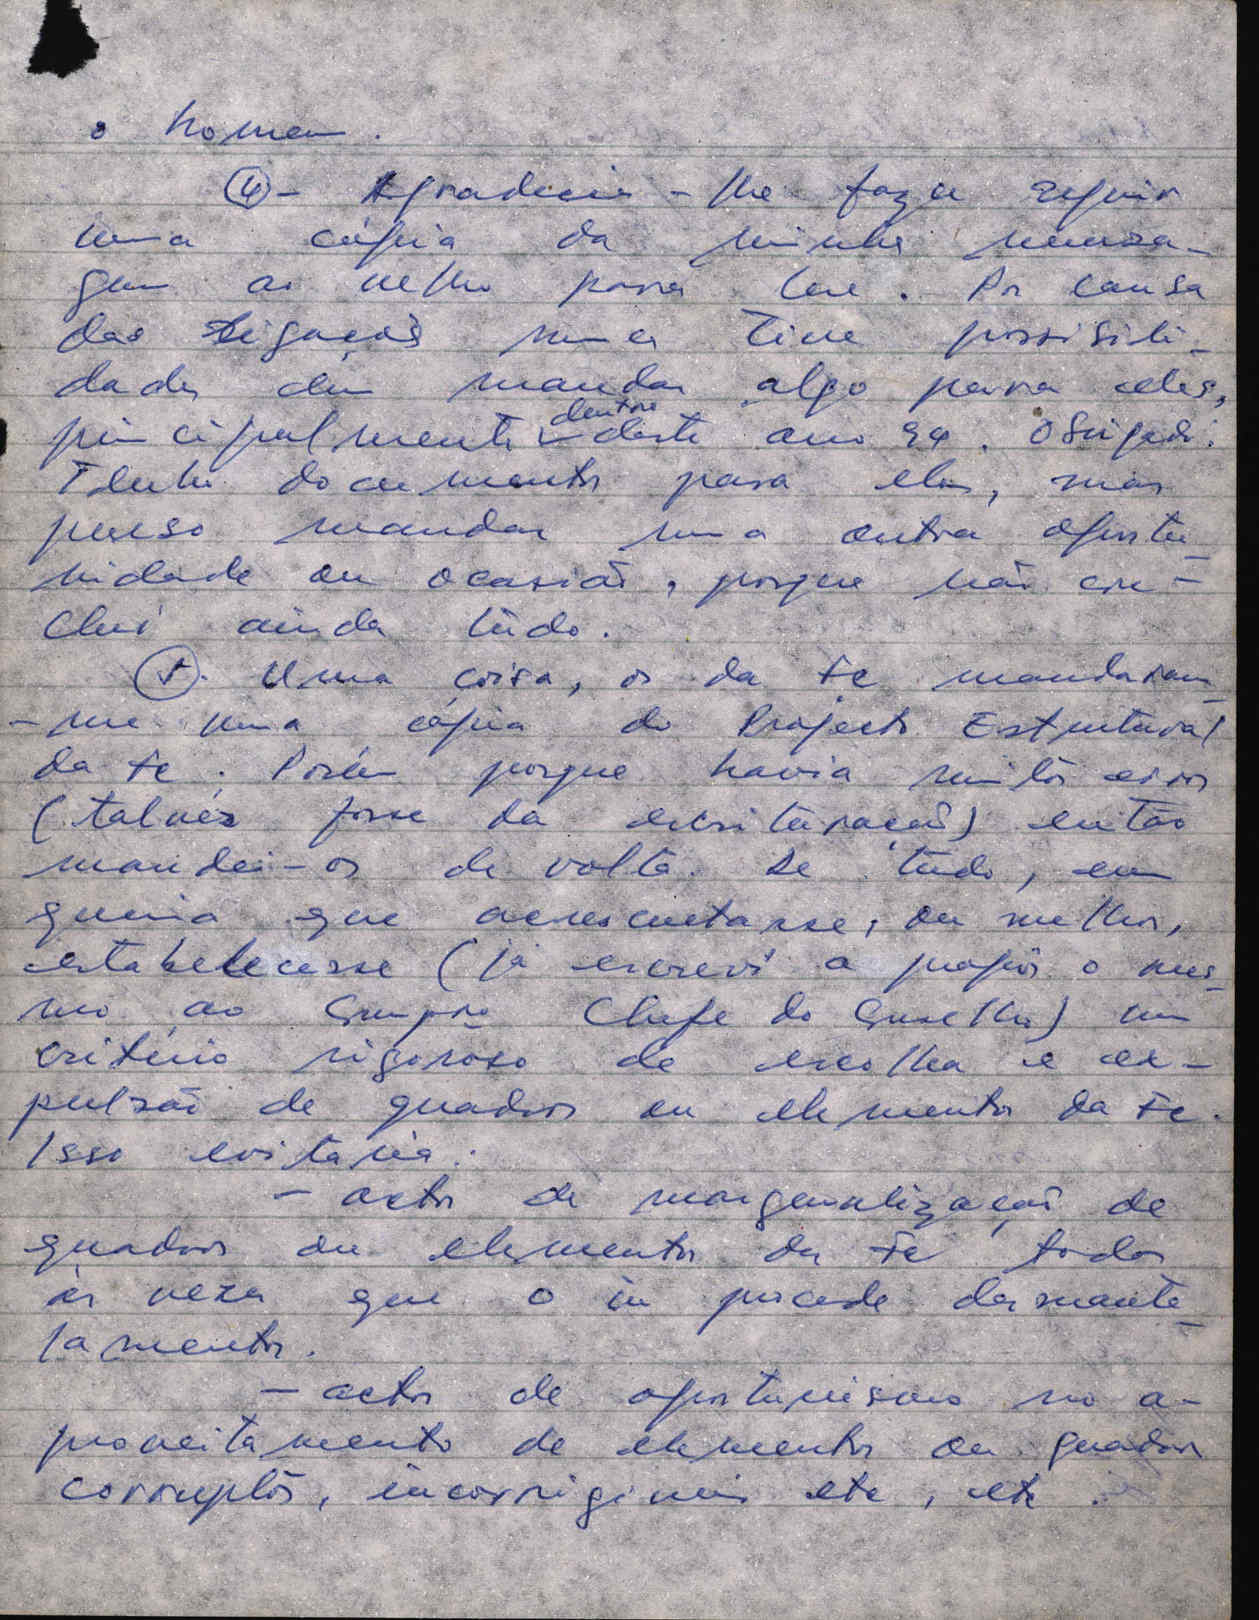 o homem.
④ - Agradecia-lhe fazer seguir
uma cópia da minha mensa-
gem ao velho para lere. Por causa
das ligações nunca tive possibili-
dades de mandar algo para eles,
principalmente dentro deste ano 99. Obrigado.
Tenho documentos para eles, mas
penso mandar numa outra oportu-
nidade ou ocasião, porque não con-
clui ainda tudo.
⑤. Uma coisa, os da Fc mandaram
-me uma cópia do Projecto Estrutural
da Fc. Porém porque havia muitos erros
(talvez fosse da escrituração) então
mandei-os de volta. De tudo, eu
queria que acrescentasse, ou melhor,
estabelecesse (já escrevi a propôr o mes-
mo ao Chefe do Conselho) um
critério rigoroso de escolha e ex-
pulsão de quadros ou elementos da Fc.
Isso evitaria.
- actos de marginalização de
quadros ou elementos da Fc todas
às vezes que o in procede desmante-
lamentos.
- actos de oportunismo no a-
proveitamento de elementos ou quadros
corruptos, incorrigiveis etc, etc.